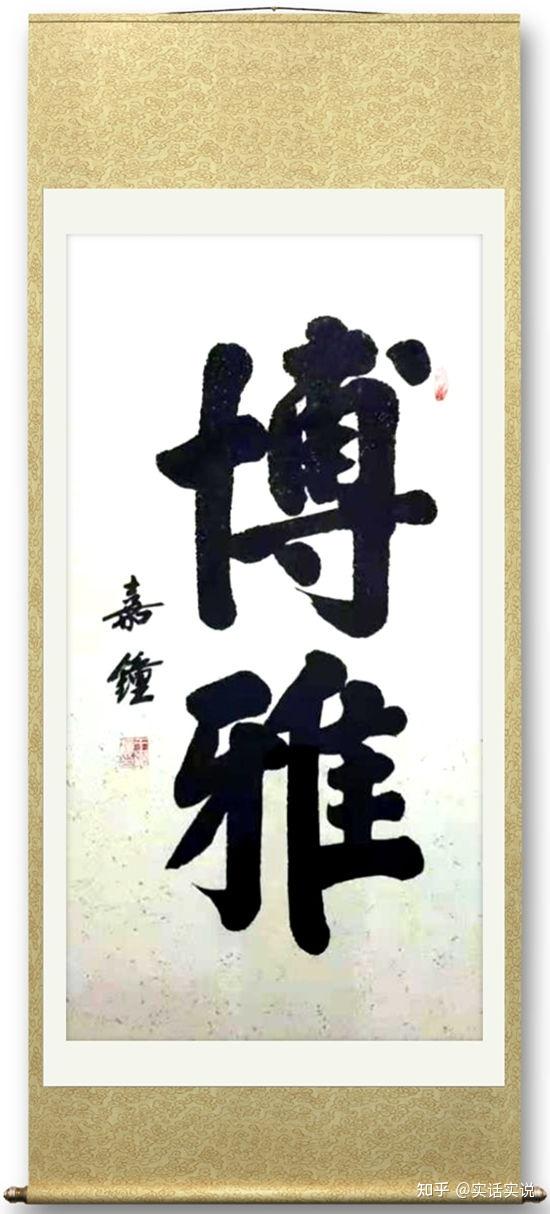 博雅
嘉鐘
知乎 @实话实说